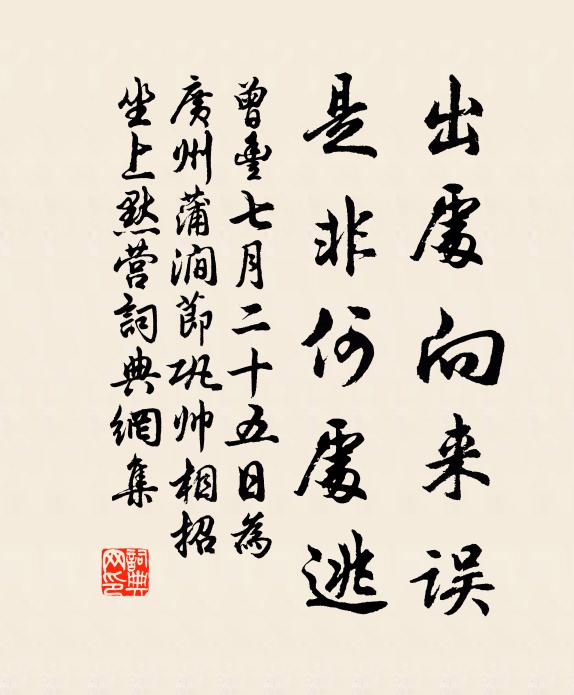 出處向来误
是非何處逃
曾豊七月二十五日為
廣州蒲澗節巩帅相招
坐上黙营詞典網集
詞典
网印